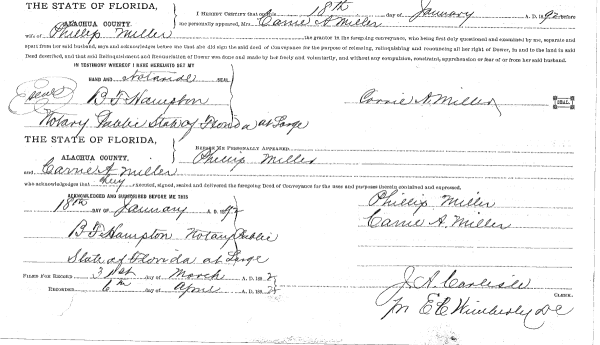 THE STATE OF FLORIDA,
ALACHUA COUNTY.
I HEREBY CERTIFY that on this 18th day of January A. D. 1892 before
me personally appeared, Mrs. Carrie A Miller
wife of Phillip Miller the grantor in the foregoing conveyance, who being first duly questioned and examined by me, separate and
apart from her said husband, says and acknowledges before me that she did sign the said deed of Conveyance for the purpose of releasing, relinquishing and renouncing all her right of Dower, in and to the land in said
Deed described, and that said Relinquishment and Renunciation of Dower was done and made by her freely and voluntarily, and without any compulsion, constraint, apprehension or fear of or from her said husband.
IN TESTIMONY WHEREOF I HAVE HEREUNTO SET MY
HAND AND Notarial SEAL
B F Hampton
Carrie A. Miller SEAL.
Notary Public State of Florida at Large
THE STATE OF FLORIDA,
ALACHUA COUNTY.
BEFORE ME PERSONALLY APPEARED Phillip Miller
and Carrie A Miller
who acknowledges that they executed, signed, sealed and delivered the foregoing Deed of Conveyance for the uses and purposes therein contained and expressed.
ACKNOWLEDGED AND SUBSCRIBED BEFORE ME THIS
18th DAY OF January A. D. 1892
Phillip Miller
Carrie A. Miller
B F Hampton Notary Public
State of Florida at Large
FILED FOR RECORD 31st day of March A. D. 1892
RECORDED 6th day of April A. D. 1892
J. A. Carlisle CLERK.
Pr E C Wimberly DC